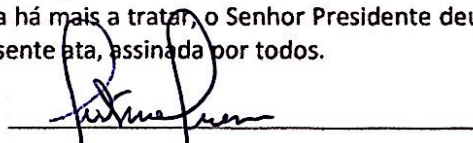 a há mais a tratar, o Senhor Presidente deu
sente ata, assinada por todos.